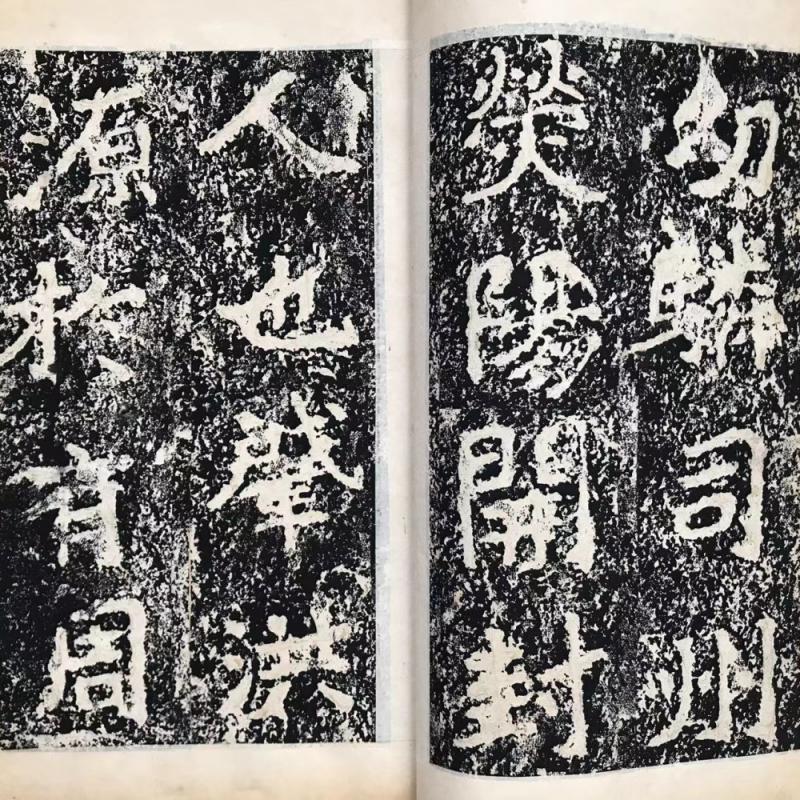 幼驎司州
熒陽開封
人也肇洪
源於有周